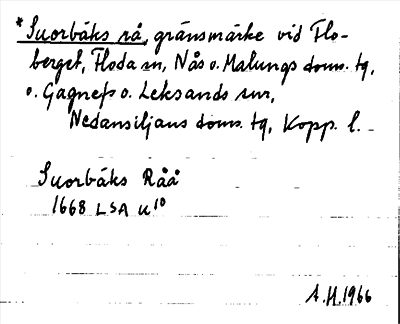 *Suorbåks rå, gränsmärke vid Flo-
berget, Floda sn, Nås o. Malungs doms. tg,
o. Gagnefs o. Leksands snr,
Nedansiljans doms. tg, Kopp. l.
Suorbåks Råå
1668 LSA U¹⁰
A.H. 1966